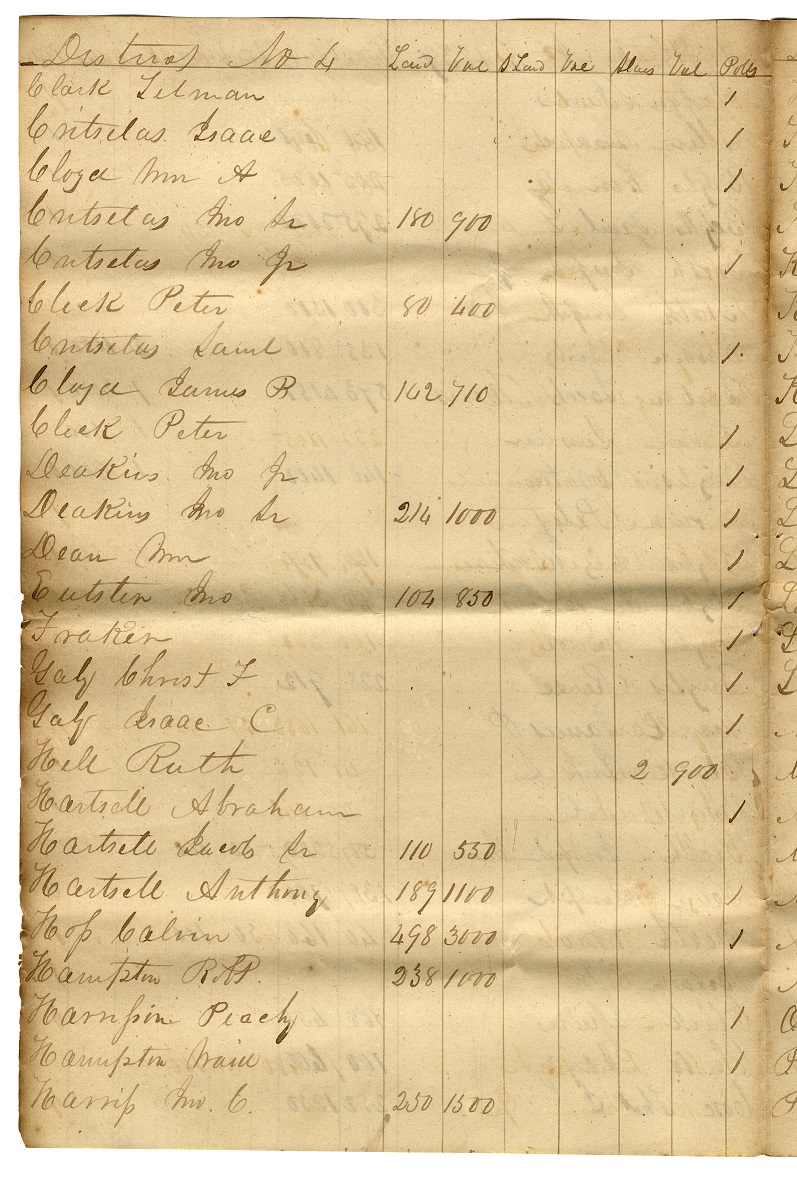 District No 4 Land Vae S Land Vae Slaves Val Polls
Clark Tilman 1
Critselas Isaac 1
Cloyd Wm A 1
Critselas Jno Sr 180 900
Critselas Jno Jr 1
Cleek Peter 80 400
Critselas Saml 1
Cloyd James R 142 710
Cleek Peter 1
Deakins Jno Jr 1
Deakins Jno Sr 214 1000 1
Dean Wm 1
Eutsler Jno 104 850 1
Fraker 1
Galy Christ F 1
Galy Isaac C 1
Hale Ruth 2 900
Hartsell Abraham 1
Hartsell Jacob Sr 110 550
Hartsell Anthony 189 1100 1
Hoss Calvin 498 3000 1
Hampton Robt P. 238 1000
Harrison Peachy 1
Hampton 1
Harris Jno. C. 250 1500